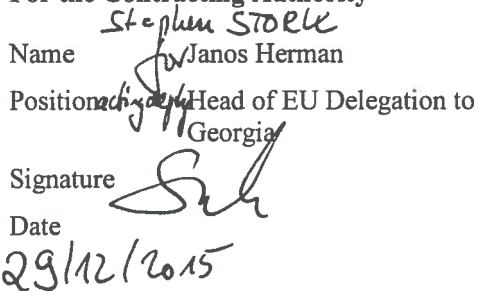 For the Contracting Authority
Stephen STORK
Name for Janos Herman
Position acting deputy Head of EU Delegation to
Georgia
Signature
Date
29/12/2015